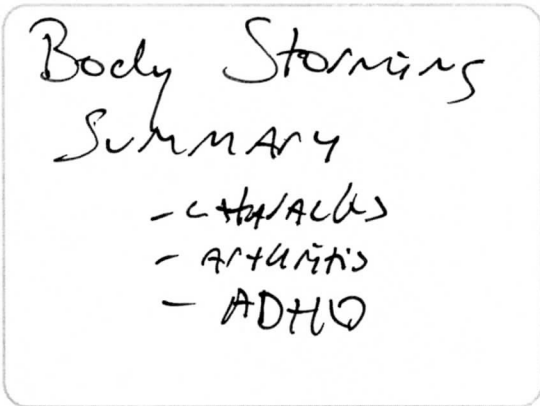 Body Storming
Summary
- Cataracts
- Arthritis
- ADHD